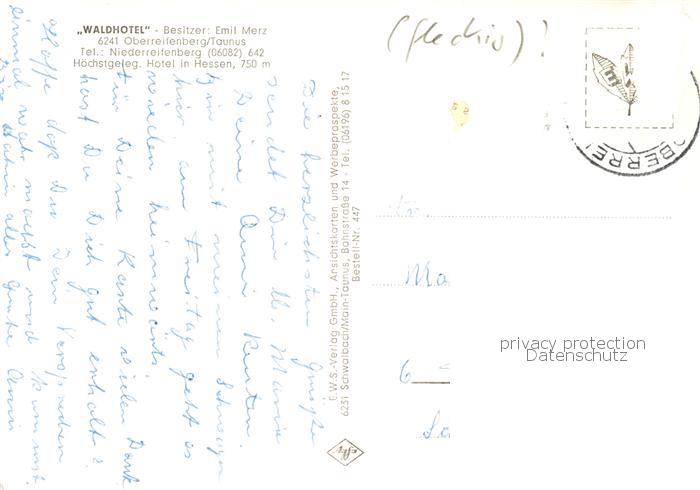 „WALDHOTEL" - Besitzer: Emil Merz
6241 Oberreifenberg/Taunus
Tel.: Niederreifenberg (06082) 642
Höchstgeleg. Hotel in Hessen, 750 m
(fleckig) !
OBERREI
Die herzlichsten Grüße
sendet Dir lb. Marie
Deine Anni
bin mit meinen Schwager
hier, am Freitag geht es
wieder heimwärts.
Für Deine Karte vielen Dank
hast Du Dich gut erholt?
Hoffe daß Du Dein Versprechen
einmal wahr machst und kommst.
Bis dahin alles Gute Anni
E.W.S.-Verlag GmbH., Ansichtskarten und Werbeprospekte,
6231 Schwalbach/Main-Taunus, Bahnstraße 14 - Tel. (06196) 8 15 17
Bestell-Nr. 447
Ma
6
privacy protection
Datenschutz